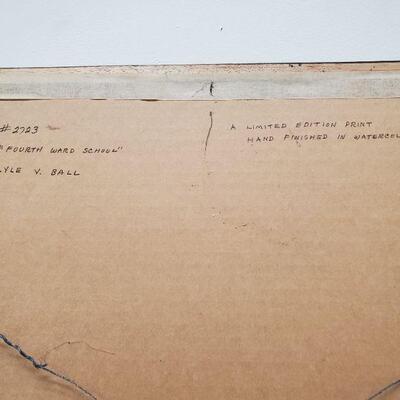 #2723
"FOURTH WARD SCHOOL"
LYLE V. BALL
A LIMITED EDITION PRINT
HAND FINISHED IN WATERCOL